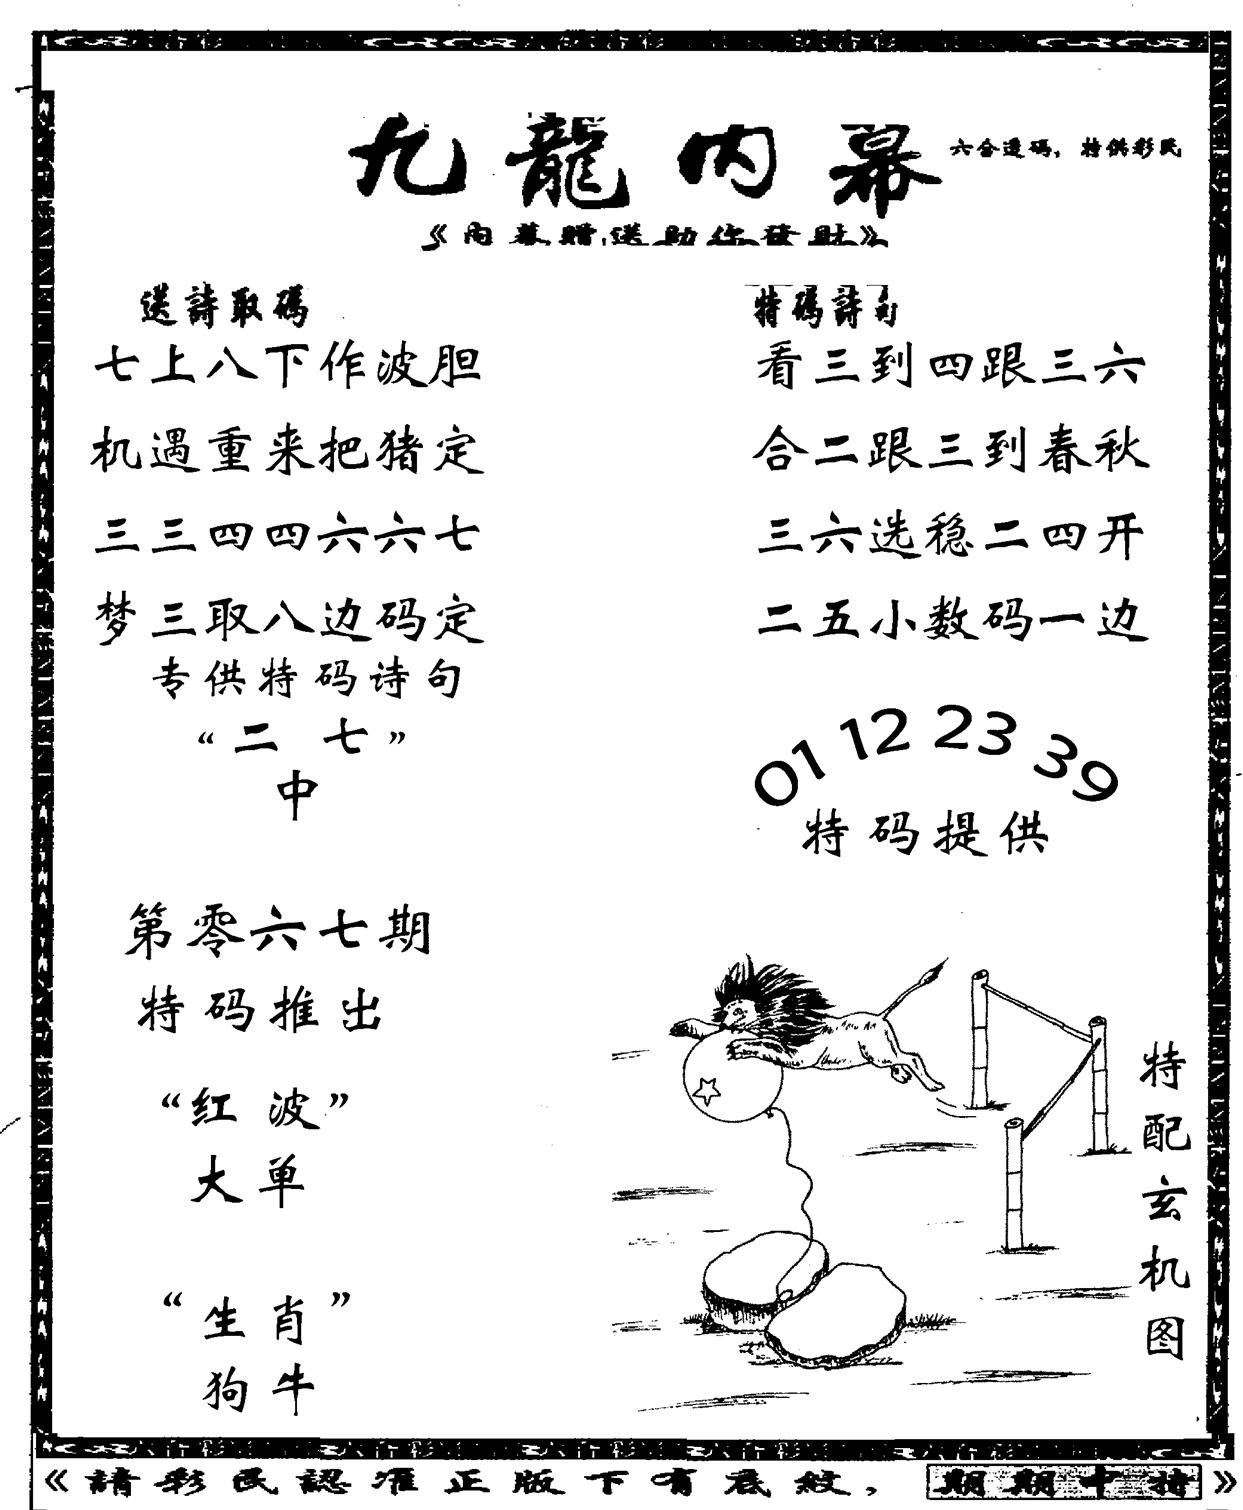 九龍内幕
六合透码，特供彩民
《内幕赠送助你發財》
送詩取碼
七上八下作波胆
机遇重来把猪定
三三四四六六七
梦三取八边码定
专供特码诗句
“二七”
中
特碼詩句
看三到四跟三六
合二跟三到春秋
三六选稳二四开
二五小数码一边
01 12 23 39
特码提供
第零六七期
特码推出
“红波”
大单
“生肖”
狗牛
特配玄机图
《請彩民認准正版下有底紋，期期中特》